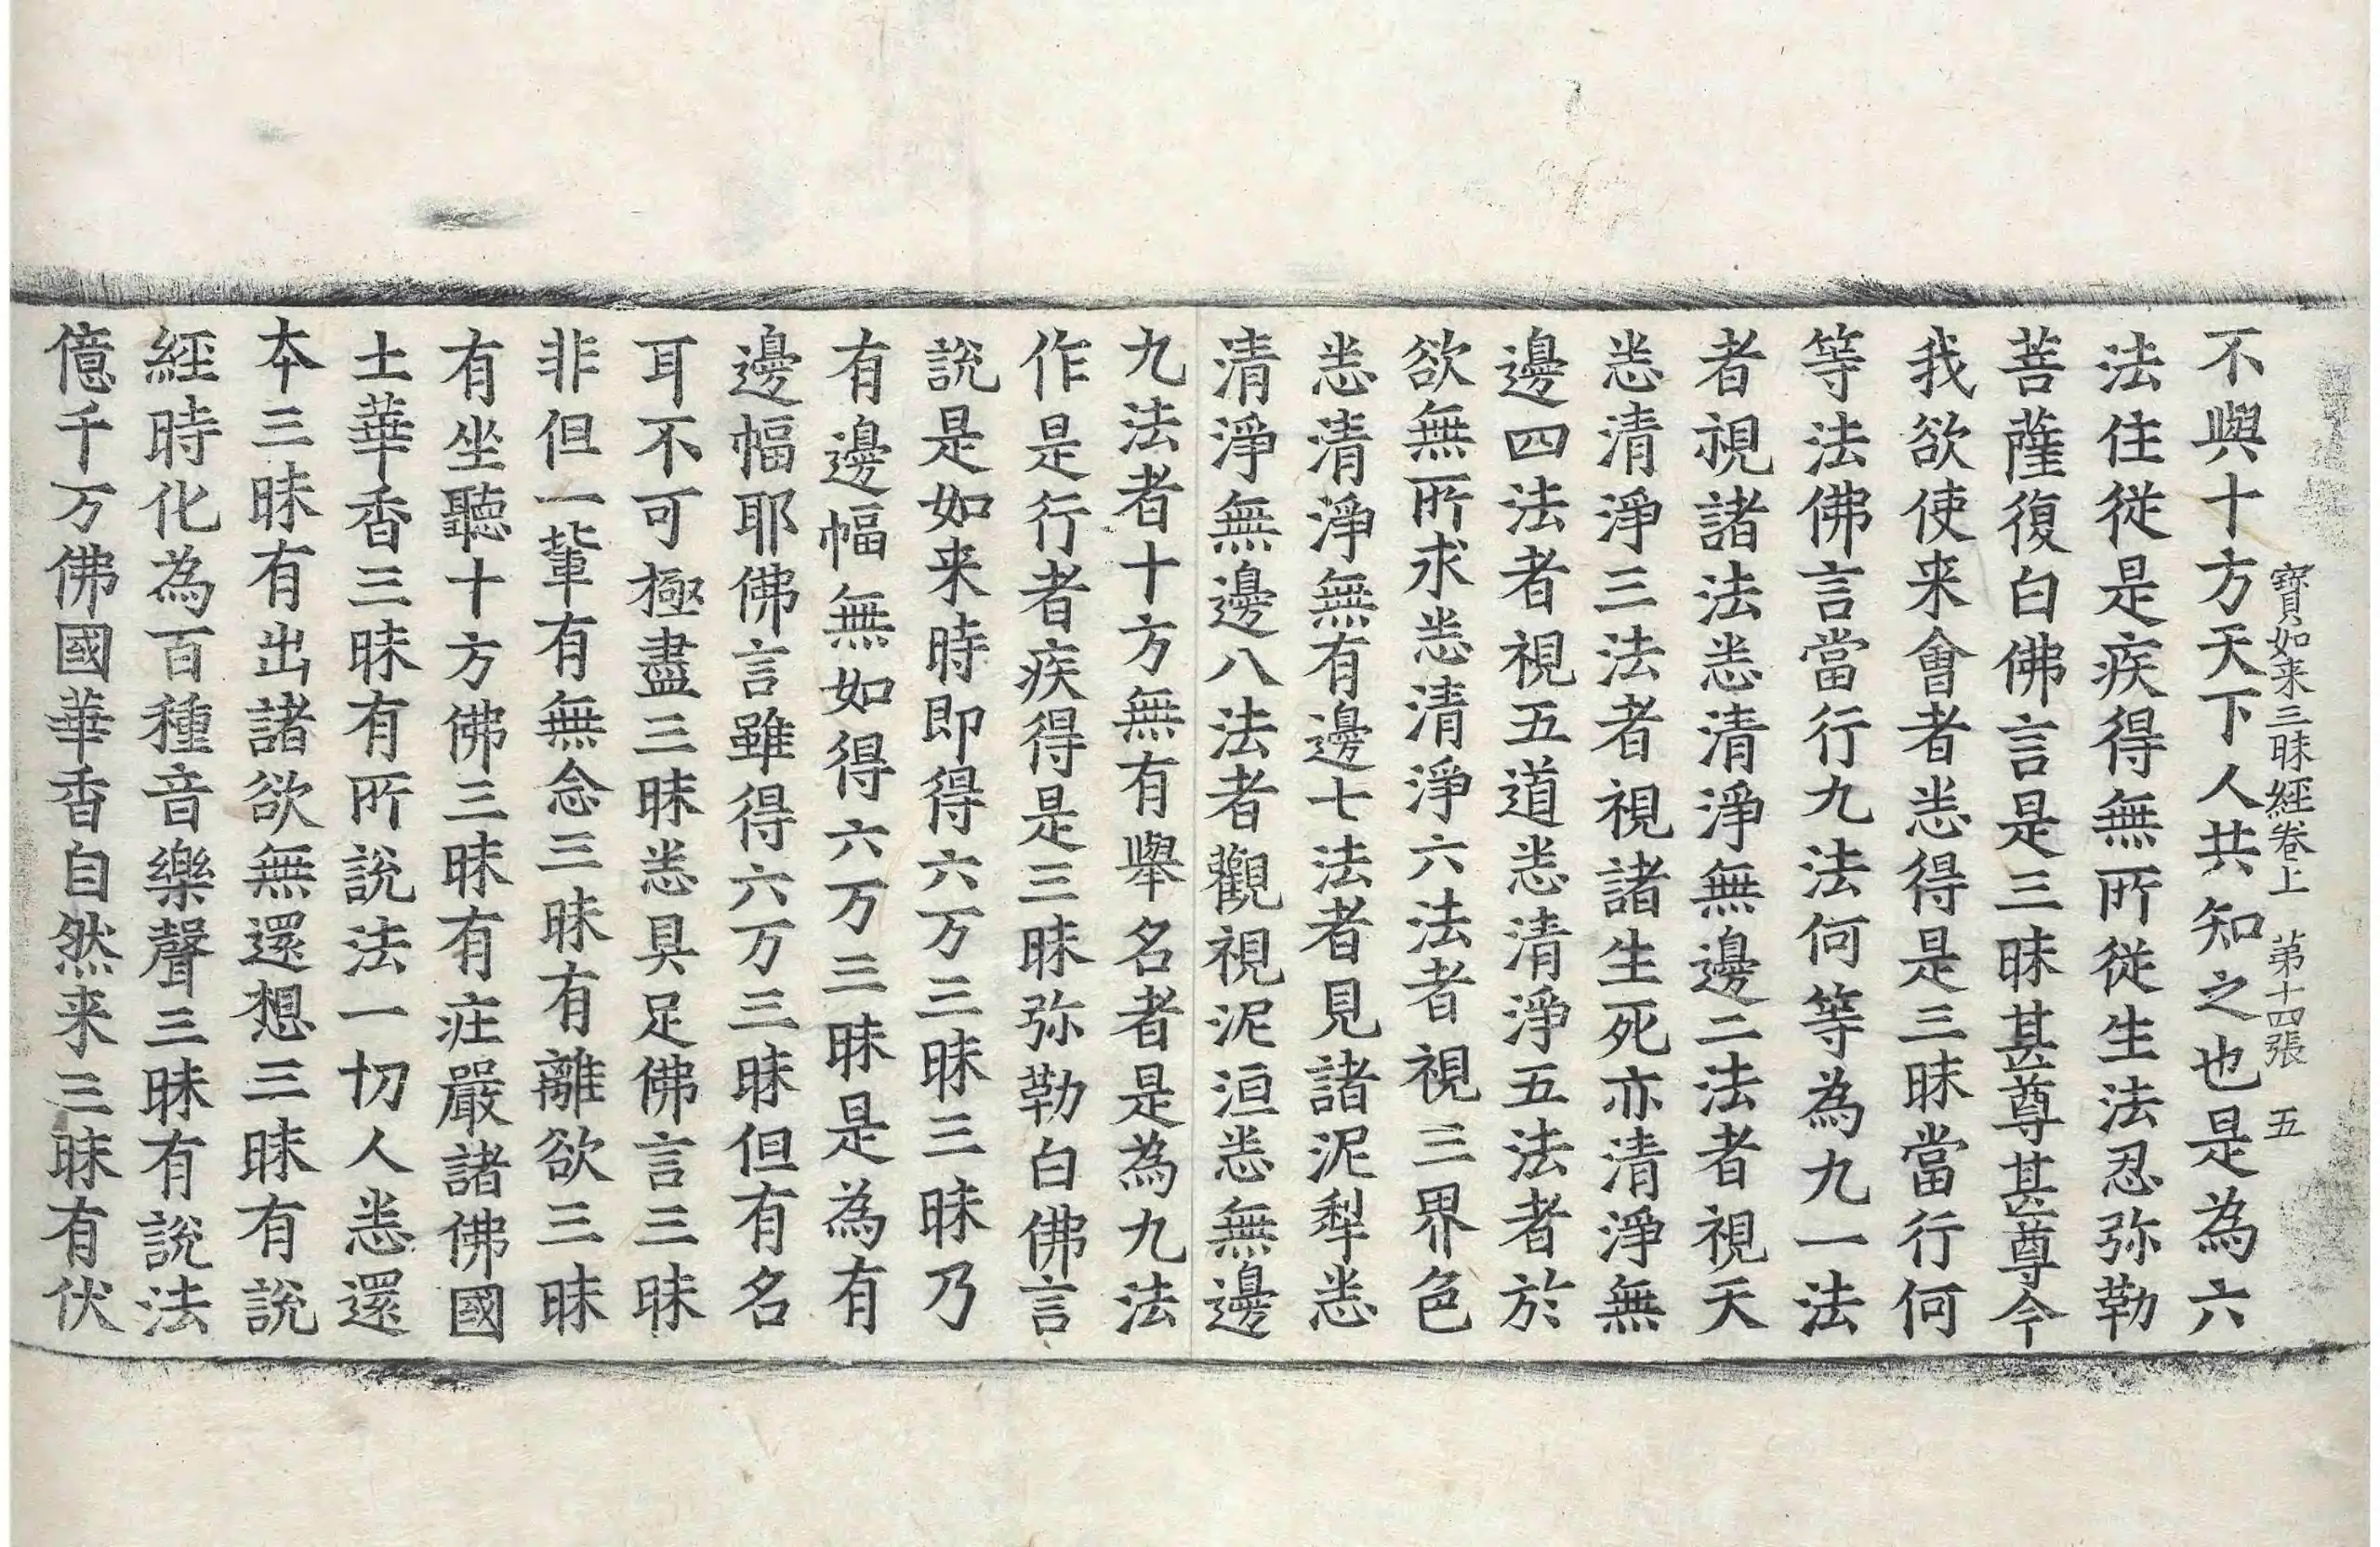 寶如来三昧經卷上　第十四張　五
不與十方天下人共知之也是為六
法住從是疾得無所從生法忍弥勒
菩薩復白佛言是三昧甚尊甚尊今
我欲使来會者悉得是三昧當行何
等法佛言當行九法何等為九一法
者視諸法悉清淨無邊二法者視天
悉清淨三法者視諸生死亦清淨無
邊四法者視五道悉清淨五法者於
欲無所求悉清淨六法者視三界色
悉清淨無有邊七法者見諸泥犁悉
清淨無邊八法者觀視泥洹悉無邊
九法者十方無有舉名者是為九法
作是行者疾得是三昧弥勒白佛言
說是如来時即得六万三昧三昧乃
有邊幅無如得六万三昧是為有
邊幅耶佛言雖得六万三昧但有名
耳不可極盡三昧悉具足佛言三昧
非但一輩有無念三昧有離欲三昧
有坐聽十方佛三昧有疘嚴諸佛國
土華香三昧有所說法一切人悉還
本三昧有出諸欲無還想三昧有說
經時化為百種音樂聲三昧有說法
億千万佛國華香自然来三昧有伏